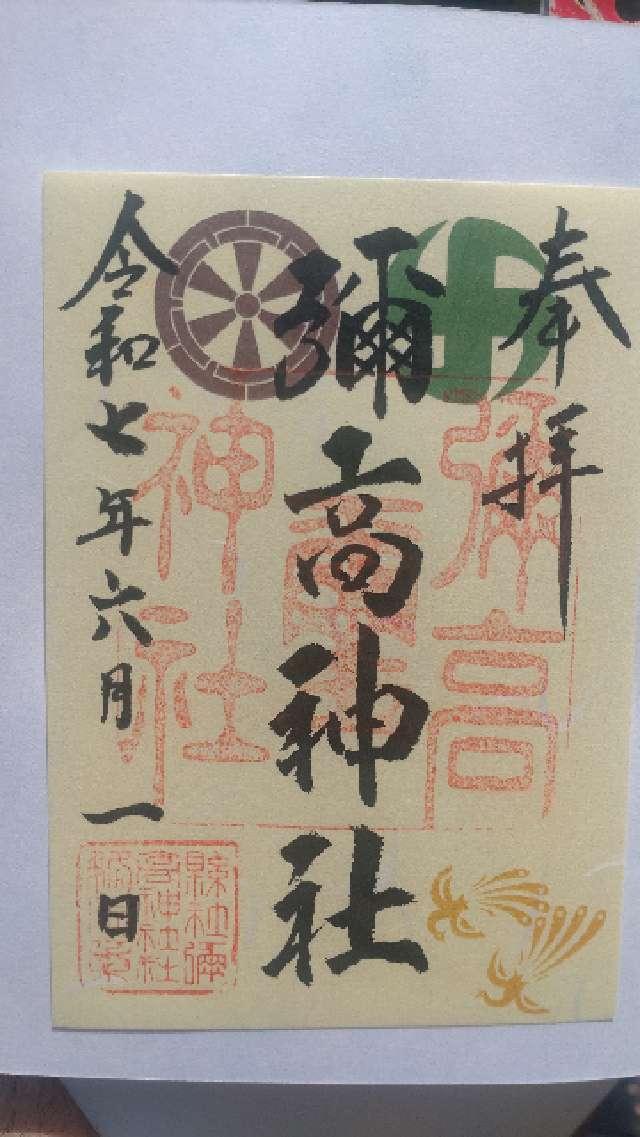 奉拝
彌高神社
令和七年六月一日
彌高
神社
縣社彌
高神社社